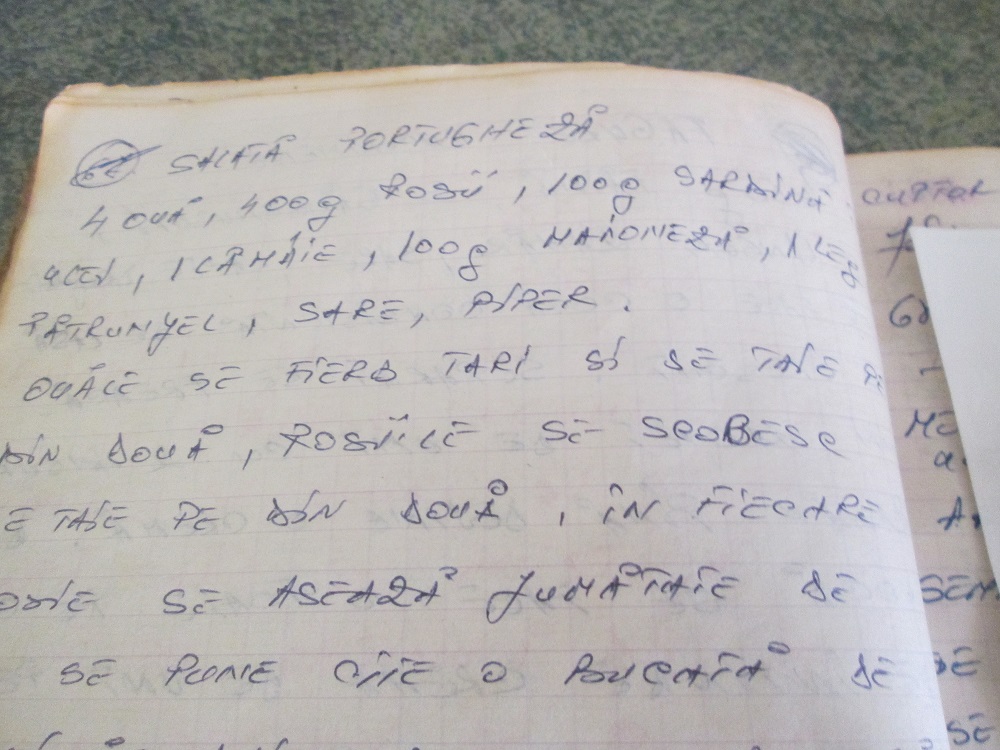 SALATĂ PORTUGHEZĂ
4 OUĂ, 400g ROSII, 100g SARDINĂ
ULEI, 1 LĂMÂIE, 100g MAIONEZĂ, 1 LEG
PĂTRUNJEL, SARE, PIPER.
OUĂLE SE FIERB TARI SI SE TAIE PE
DIN DOUĂ, ROSIILE SE SCOBESC
E TAIE PE DIN DOUĂ, ÎN FIECARE
OSIE SE ASEAZĂ JUMĂTATE DE
SE PUNE CITE O BUCATĂ DE
CUPTOR
SEM
DE
SE